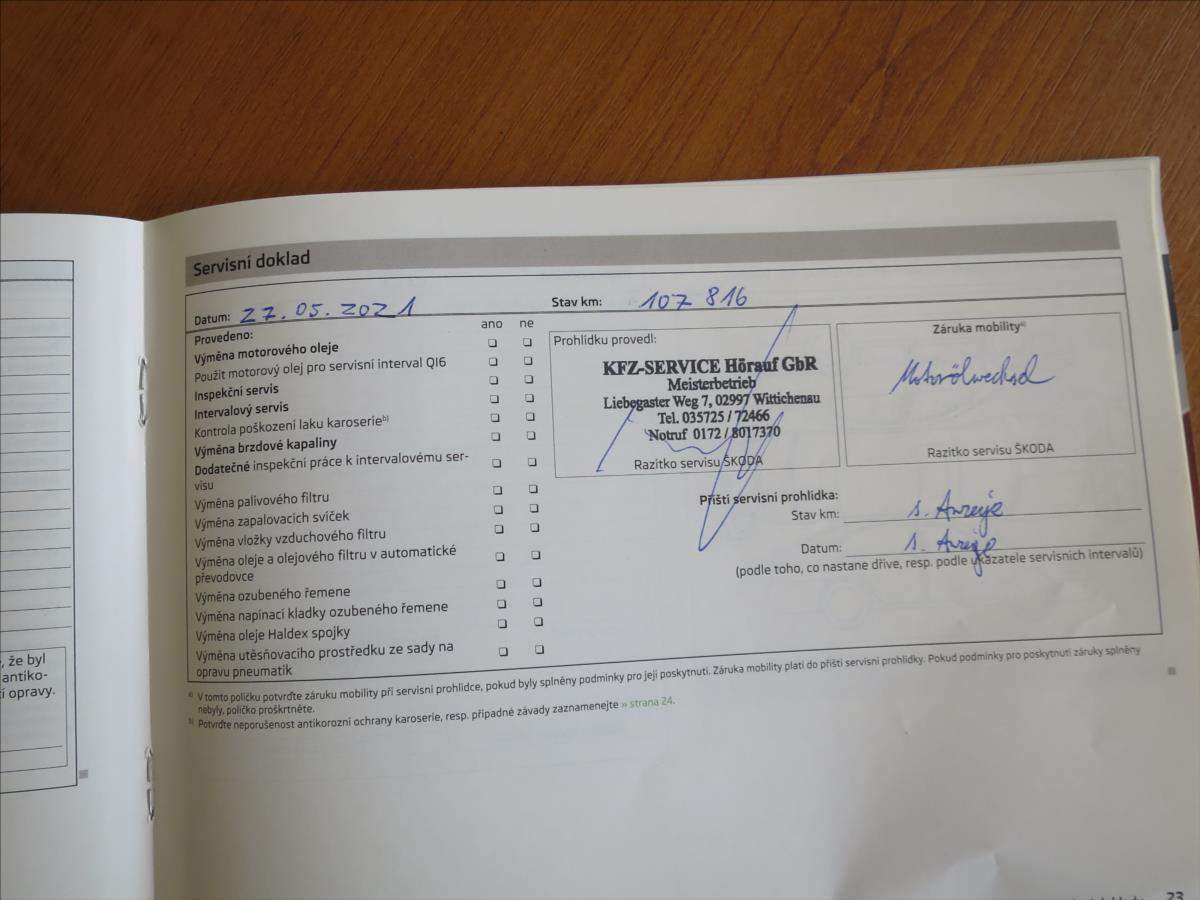 Servisní doklad
Datum: 27.05.2021
Stav km: 107 816
Provedeno:
ano ne
Výměna motorového oleje
Použit motorový olej pro servisní interval QI6
Inspekční servis
Intervalový servis
Kontrola poškození laku karoserie b)
Výměna brzdové kapaliny
Dodatečné inspekční práce k intervalovému ser-
visu
Výměna palivového filtru
Výměna zapalovacích svíček
Výměna vložky vzduchového filtru
Výměna oleje a olejového filtru v automatické
převodovce
Výměna ozubeného řemene
Výměna napínací kladky ozubeného řemene
Výměna oleje Haldex spojky
Výměna utěsňovacího prostředku ze sady na
opravu pneumatik
Prohlídku provedl:
KFZ-SERVICE Hörauf GbR
Meisterbetrieb
Liebegaster Weg 7, 02997 Wittichenau
Tel. 035725 / 72466
Notruf 0172 / 8017370
Razítko servisu ŠKODA
Záruka mobility a)
Motorölwechsel
Razítko servisu ŠKODA
Příští servisní prohlídka:
Stav km: s. Anzeige
Datum: s. Anzeige
(podle toho, co nastane dříve, resp. podle ukazatele servisních intervalů)
a) V tomto políčku potvrďte záruku mobility při servisní prohlídce, pokud byly splněny podmínky pro její poskytnutí. Záruka mobility platí do příští servisní prohlídky. Pokud podmínky pro poskytnutí záruky splněny
nebyly, políčko proškrtněte.
b) Potvrďte neporušenost antikorozní ochrany karoserie, resp. případné závady zaznamenejte » strana 24.
, že byl
antiko-
í opravy.
23